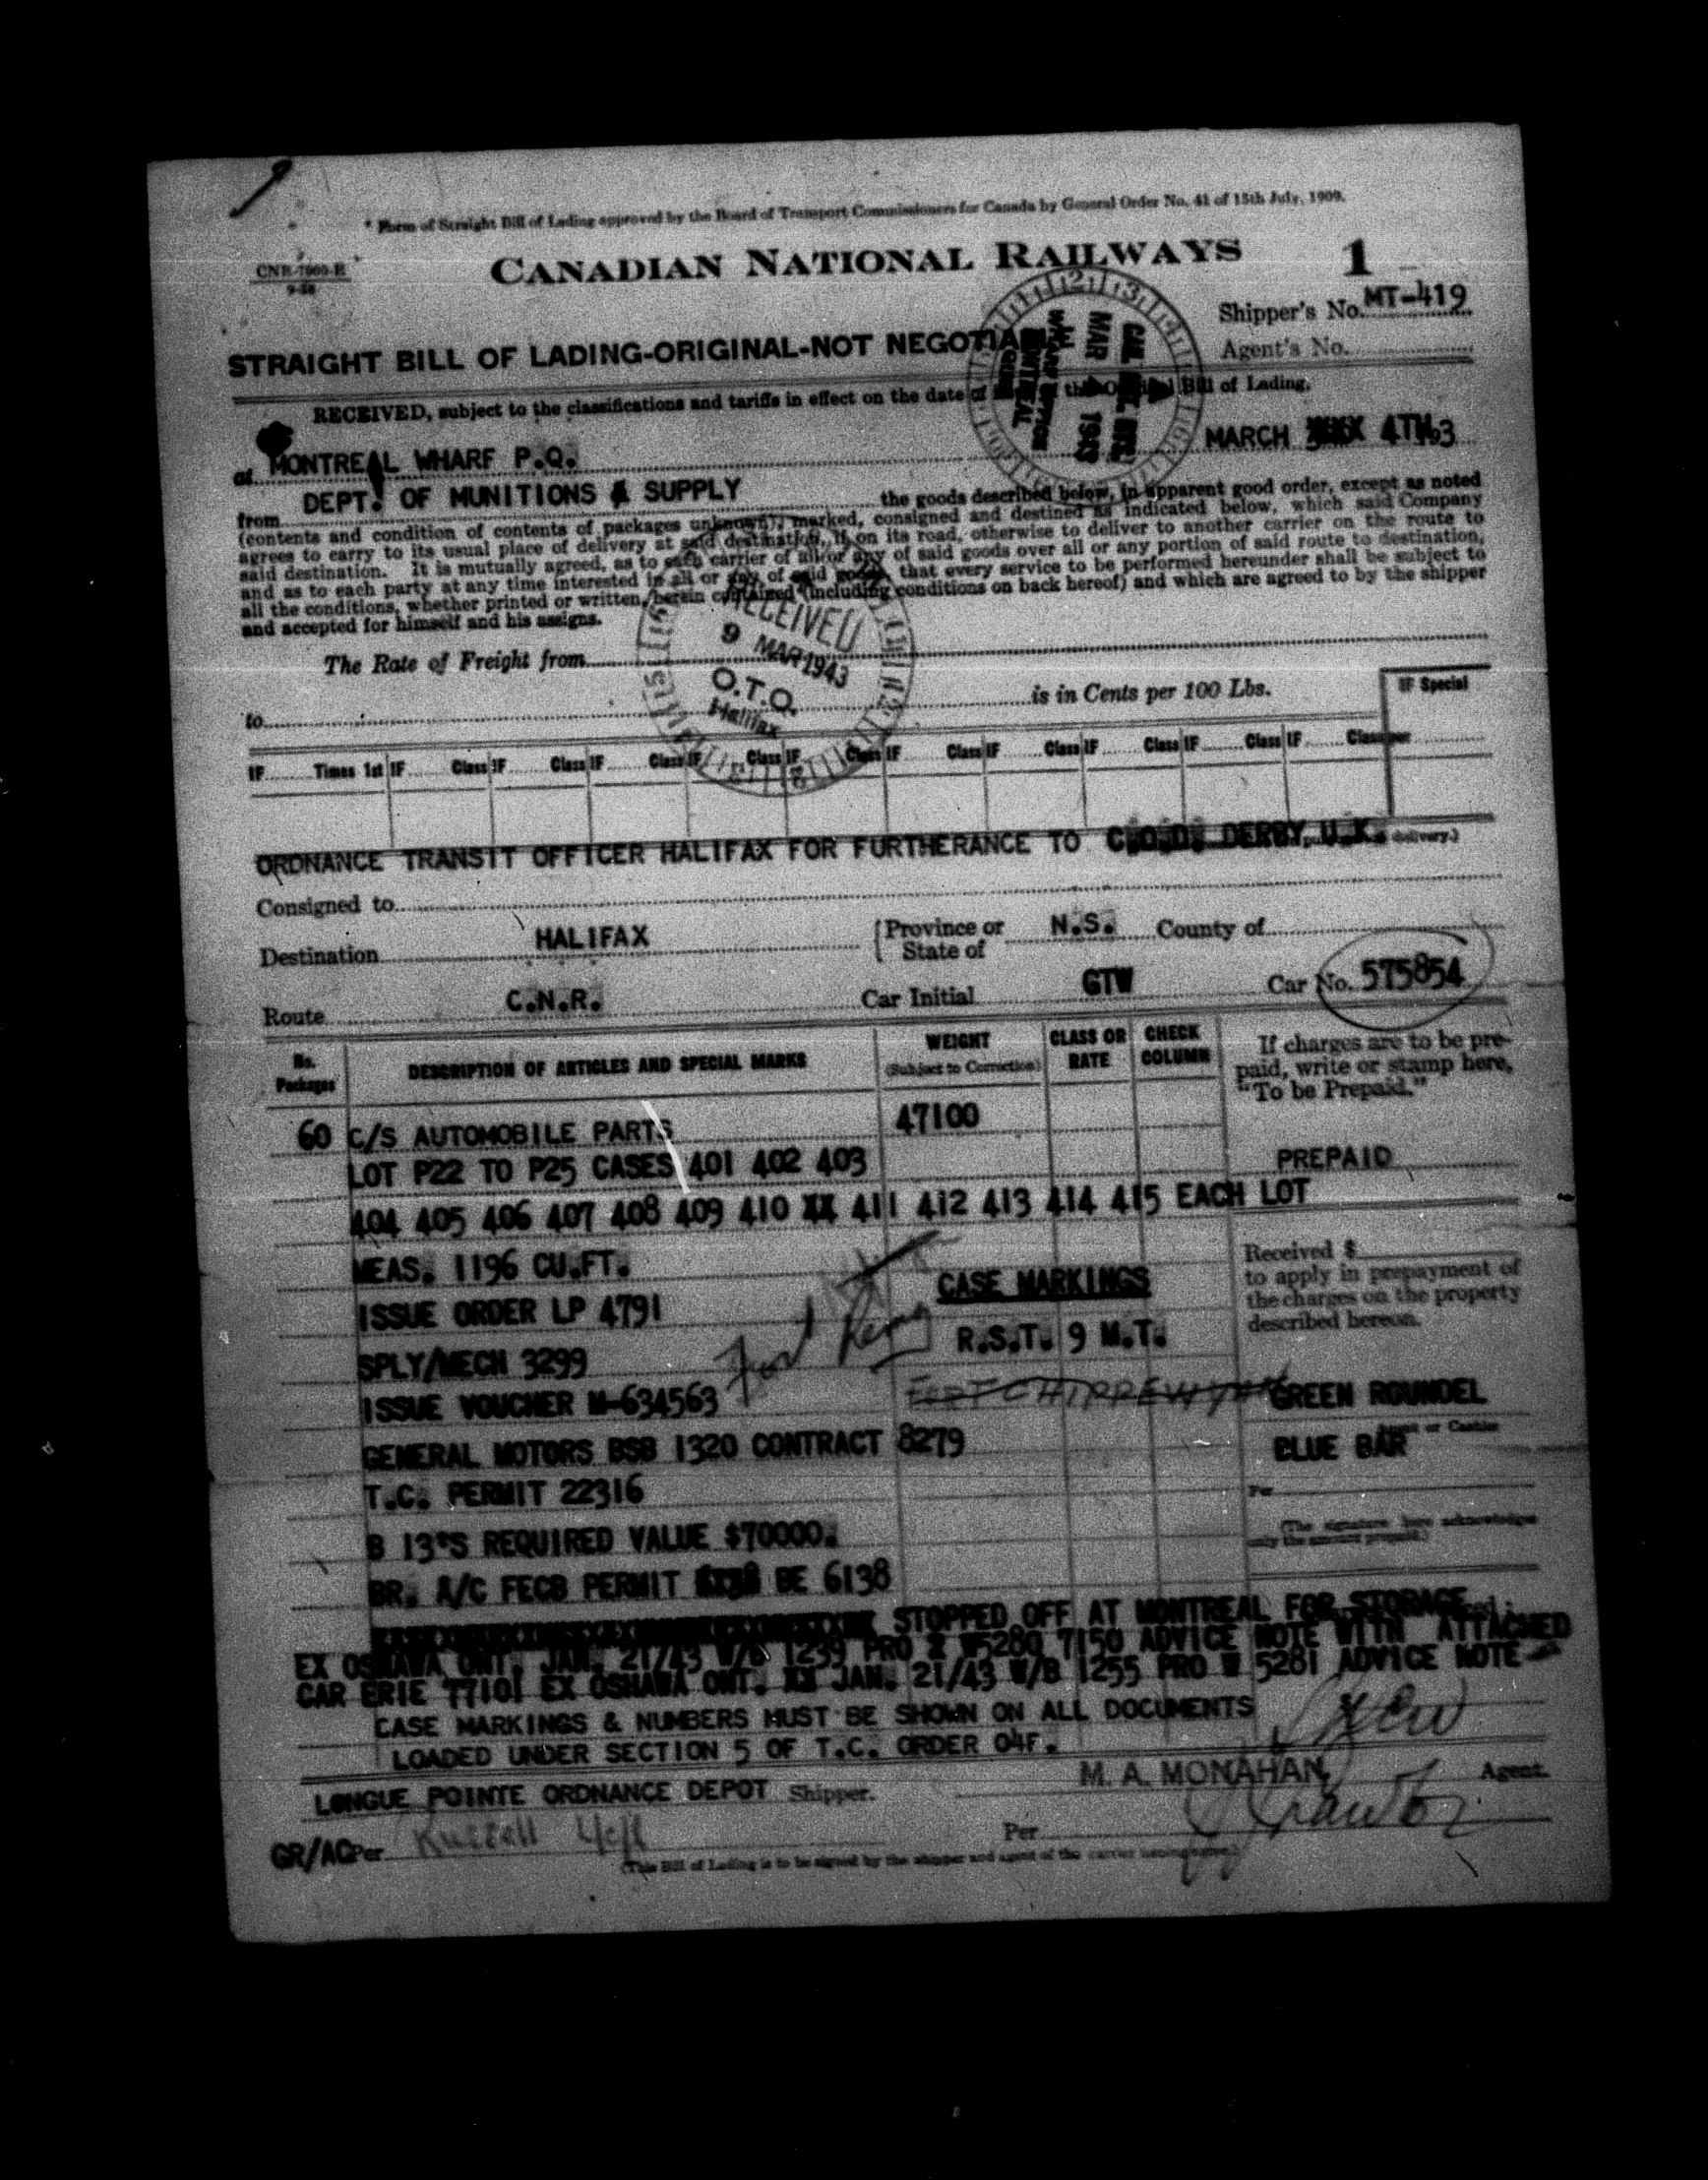 * Form of Straight Bill of Lading approved by the Board of Transport Commissioners for Canada by General Order No. 41 of 15th July, 1909.
CANADIAN NATIONAL RAILWAYS 1
Shipper's No. MT-419
STRAIGHT BILL OF LADING-ORIGINAL-NOT NEGOTIABLE
Agent's No.
RECEIVED, subject to the classifications and tariffs in effect on the date of Bill of Lading,
MAR 4 1943
at MONTREAL WHARF P.Q. MARCH 4TH 3
from DEPT. OF MUNITIONS & SUPPLY the goods described below, in apparent good order, except as noted
(contents and condition of contents of packages unknown), marked, consigned and destined as indicated below, which said Company
agrees to carry to its usual place of delivery at said destination, if on its road, otherwise to deliver to another carrier on the route to
said destination. It is mutually agreed, as to each carrier of all or any of said goods over all or any portion of said route to destination,
and as to each party at any time interested in all or any of said goods, that every service to be performed hereunder shall be subject to
all the conditions, whether printed or written, herein contained (including conditions on back hereof) and which are agreed to by the shipper
and accepted for himself and his assigns.
RECEIVED
9 MAR 1943
O.T.O.
Halifax
The Rate of Freight from
to is in Cents per 100 Lbs.
IF Special
IF Times 1st IF Class IF Class IF Class IF Class IF Class IF Class IF Class IF Class IF Class IF Class per
ORDNANCE TRANSIT OFFICER HALIFAX FOR FURTHERANCE TO C.O.D. DERBY, U.K. delivery.)
Consigned to
Destination HALIFAX Province or State of N.S. County of
Route C.N.R. Car Initial GTW Car No. 575854
No. Packages DESCRIPTION OF ARTICLES AND SPECIAL MARKS WEIGHT (Subject to Correction) CLASS OR RATE CHECK COLUMN
If charges are to be prepaid, write or stamp here, "To be Prepaid."
60 C/S AUTOMOBILE PARTS 47100
PREPAID
LOT P22 TO P25 CASES 401 402 403
404 405 406 407 408 409 410 XX 411 412 413 414 415 EACH LOT
MEAS. 1196 CU.FT.
Received $
to apply in prepayment of
the charges on the property
described hereon.
CASE MARKINGS
ISSUE ORDER LP 4791
R.S.T. 9 M.T.
SPLY/MECH 3299
ISSUE VOUCHER M-634563
FORT CHIPPEWYAN
GREEN ROUNDEL
GENERAL MOTORS BSB 1320 CONTRACT 8279
Agent or Cashier
BLUE BAR
T.C. PERMIT 22316
Per
(The signature here acknowledges
only the amount prepaid.)
B 13'S REQUIRED VALUE $70000.
BR. A/C FECB PERMIT BE 6138
STOPPED OFF AT MONTREAL FOR STORAGE
EX OSHAWA ONT. JAN. 21/43 W/B 1239 PRO W5280 7150 ADVICE NOTE WITH ATTACHED
CAR ERIE 77101 EX OSHAWA ONT. XX JAN. 21/43 W/B 1255 PRO W 5281 ADVICE NOTE
CASE MARKINGS & NUMBERS MUST BE SHOWN ON ALL DOCUMENTS
LOADED UNDER SECTION 5 OF T.C. ORDER 04F.
LONGUE POINTE ORDNANCE DEPOT Shipper. M. A. MONAHAN, Agent.
GR/AG Per Russell Per
(This Bill of Lading is to be signed by the shipper and agent of the carrier issuing same.)